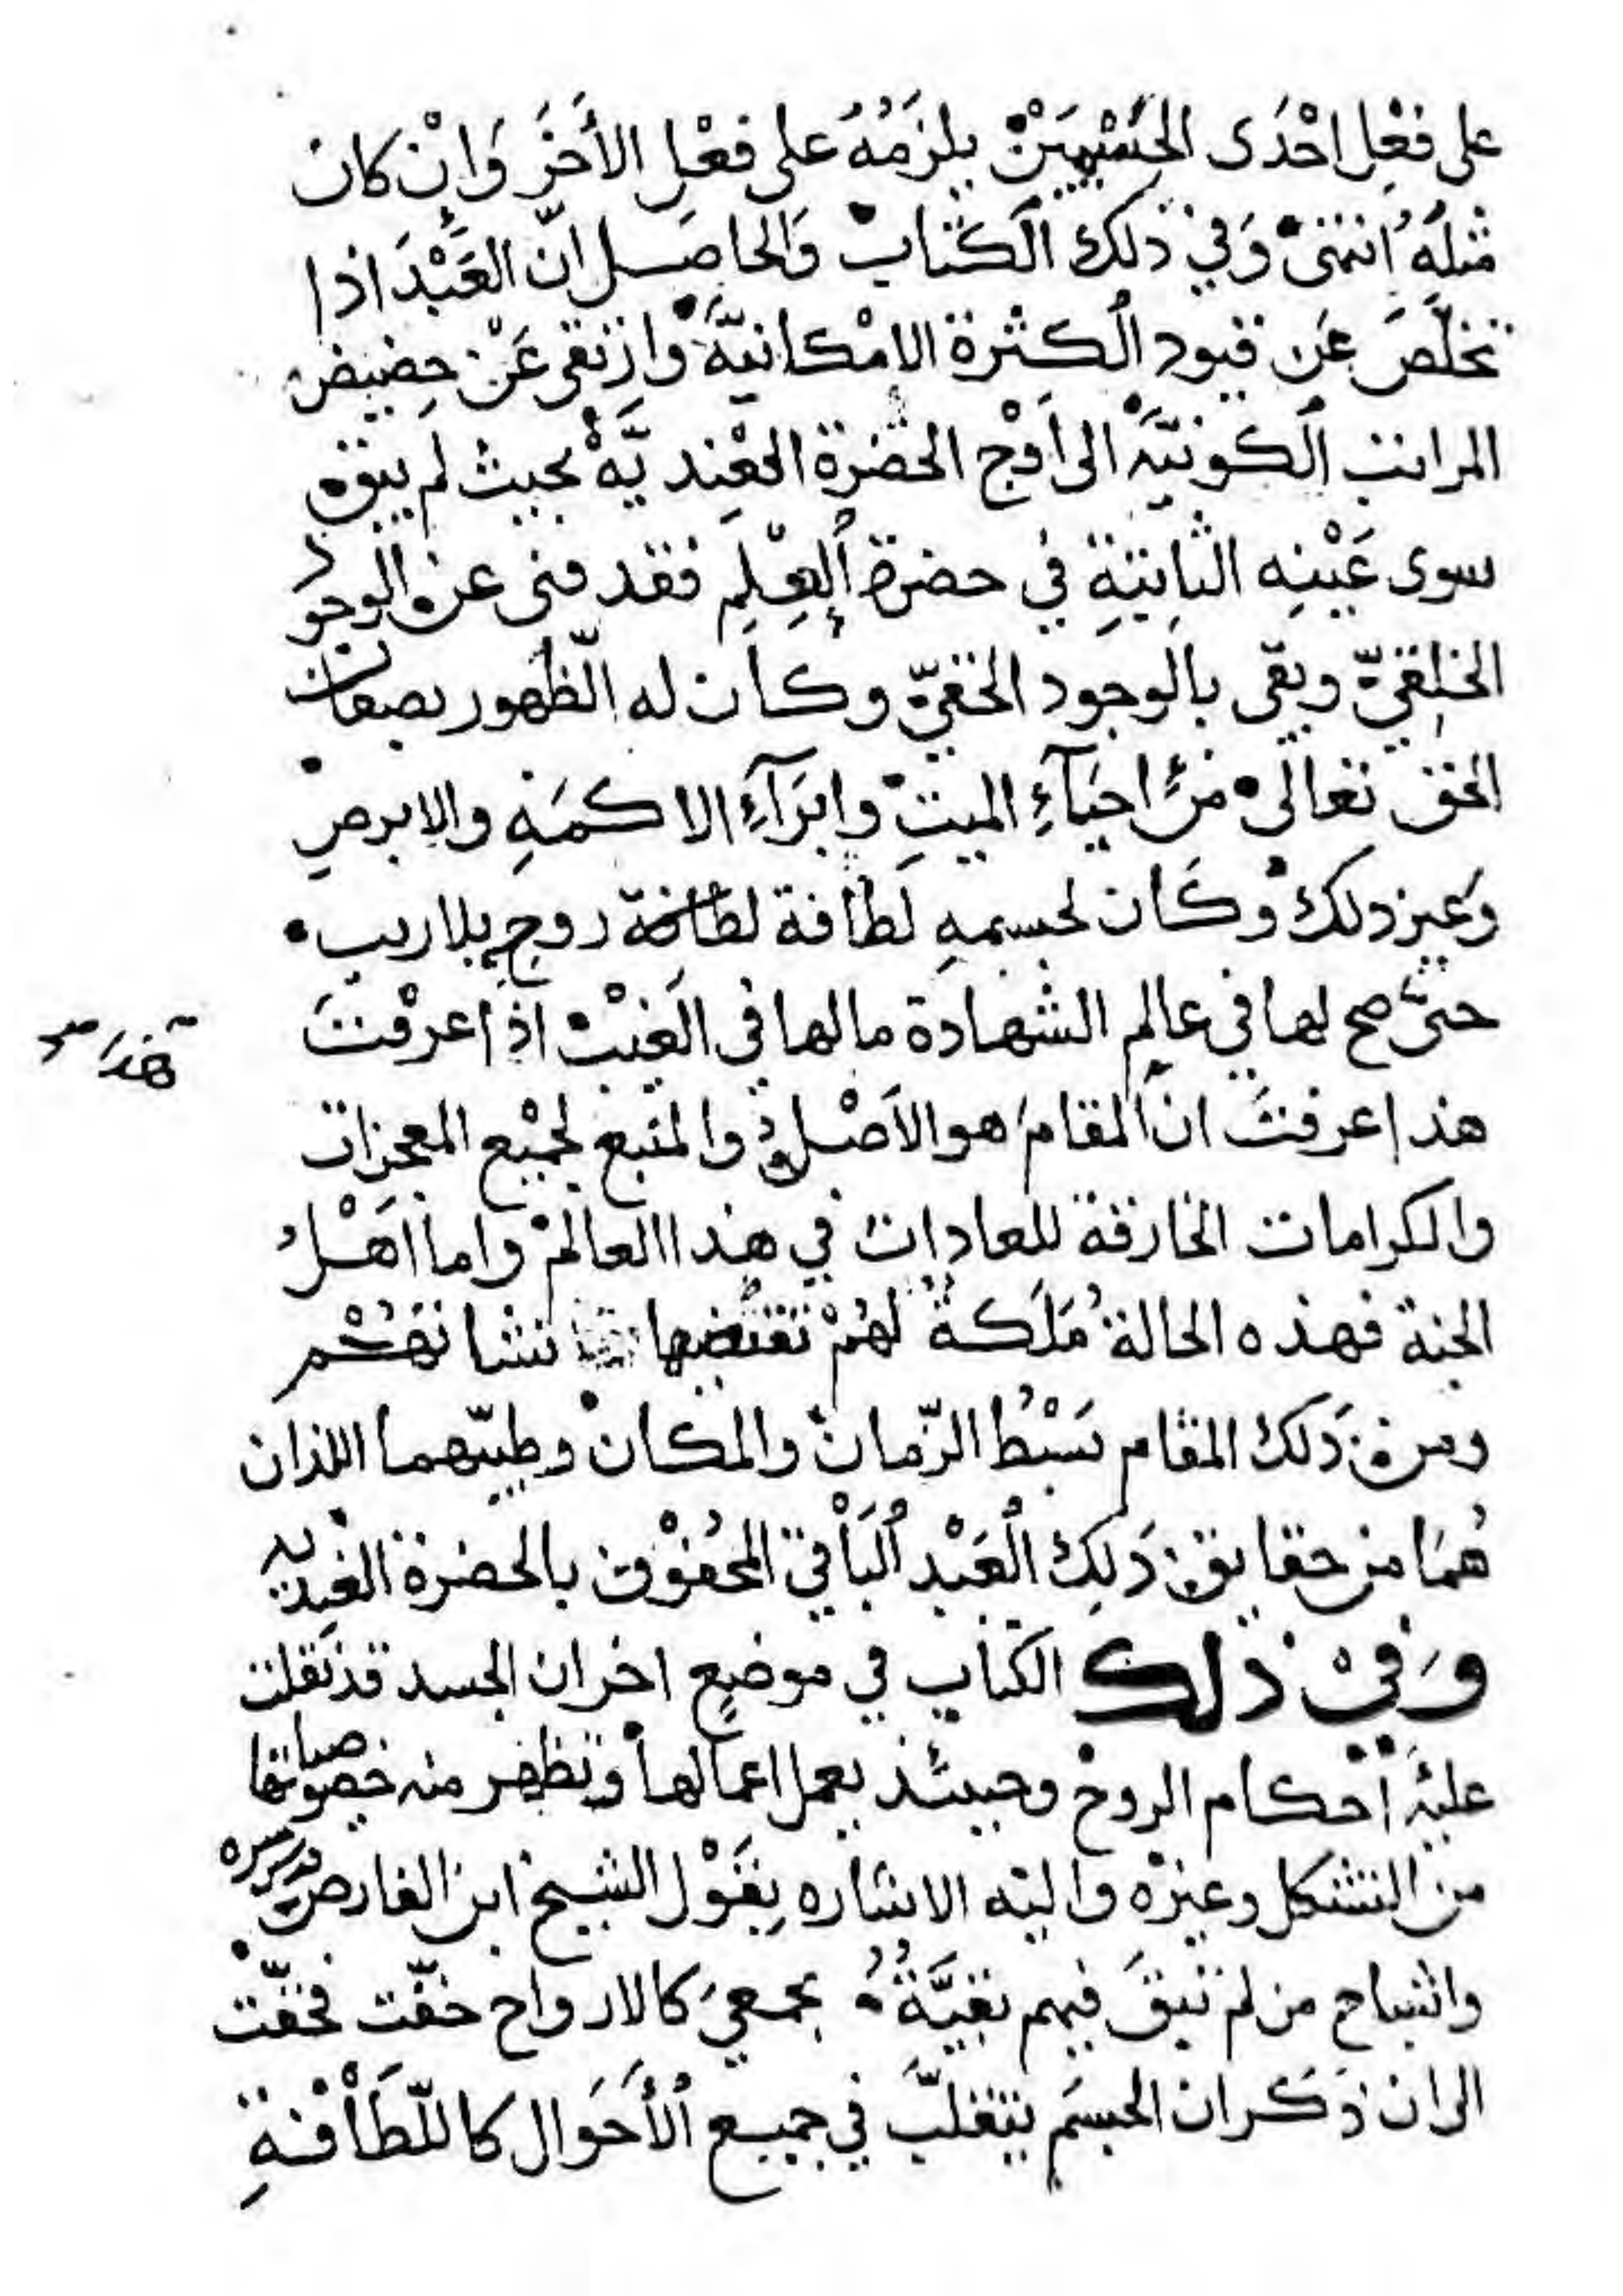 على فعل احدى الجسمين يلزمه على فعل الأخر وان كان
مثله انتهى وفي ذلك الكتاب والحاصل ان العبد اذا
تخلّص عن قيود الكثرة الامكانيّة وارتقى عن حضيض
المراتب الكونيّه الى اوج الحضرة العنديّة بحيث لم يبق
سوى عينه الثابتة في حضرة العلم فقد فنى عن الوجود
الخلقيّ وبقى بالوجود الحقيّ وكان له الظهور بصفات
الحق تعالى من احيآء الميت وابرآء الاكمه والابرص
وغير ذلك وكان لجسمه لطافة لطافة روح بلا ريب
حتى صح لها في عالم الشهادة ما لها في الغيب اذا عرفت
هذا عرفت ان المقام هو الاصل والمنبع لجميع المعجزات
والكرامات الخارقة للعادات في هذا العالم واما اهل
الجنة فهذه الحالة ملكة لهم تقتضيها نشاتهم
ومن ذلك المقام بسط الزمان والمكان وطيّهما اللذان
هما من حقايق ذلك العبد الباقي المحفوف بالحضرة العنديه
وفي ذلك الكتاب في موضع اخر ان الجسد قد نقلت
عليه احكام الروح وحينئذ يعمل اعمالها وتظهر منه خصوصياتها
من التشكل وغيره واليه الاشاره بقول الشيخ ابن الفارض قدس سره
واشباح من لم تبق فيهم بقيّة بجمعي كالارواح خفّت فخفّت
الى ان ذكر ان الجسم يتقلّب في جميع الأحوال كاللّطافة